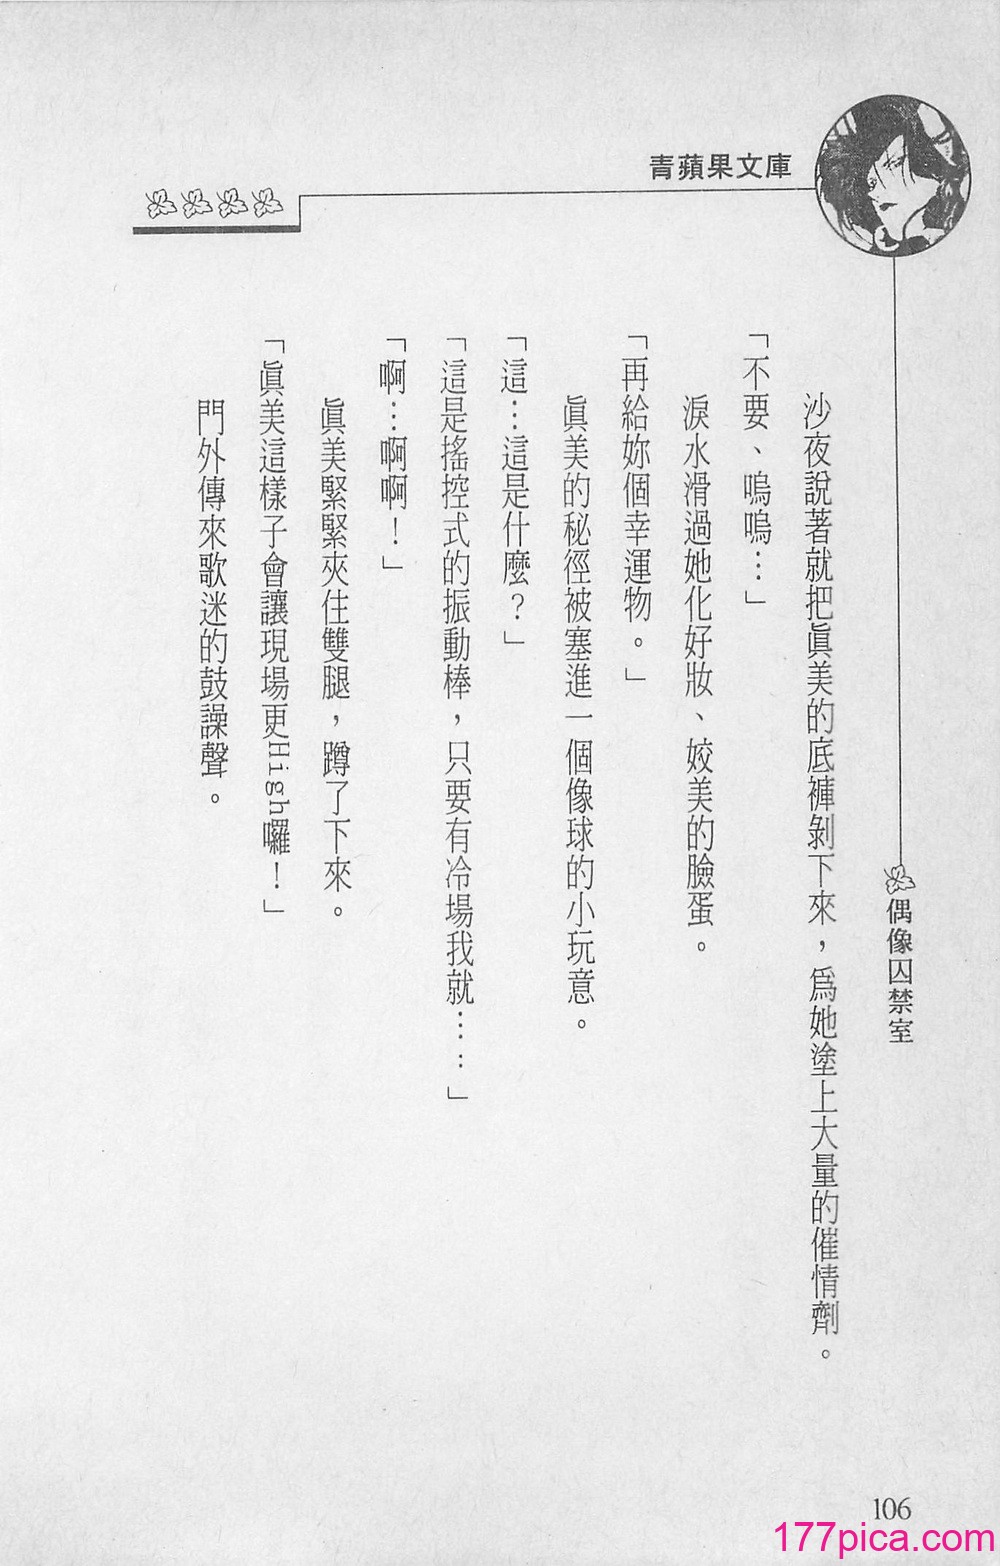 青蘋果文庫
偶像囚禁室
沙夜說著就把眞美的底褲剝下來，爲她塗上大量的催情劑。
「不要、嗚嗚…」
淚水滑過她化好妝、姣美的臉蛋。
「再給妳個幸運物。」
眞美的秘徑被塞進一個像球的小玩意。
「這…這是什麼？」
「這是搖控式的振動棒，只要有冷場我就……」
「啊…啊啊！」
眞美緊緊夾住雙腿，蹲了下來。
「眞美這樣子會讓現場更High囉！」
門外傳來歌迷的鼓譟聲。
106
177pica.com